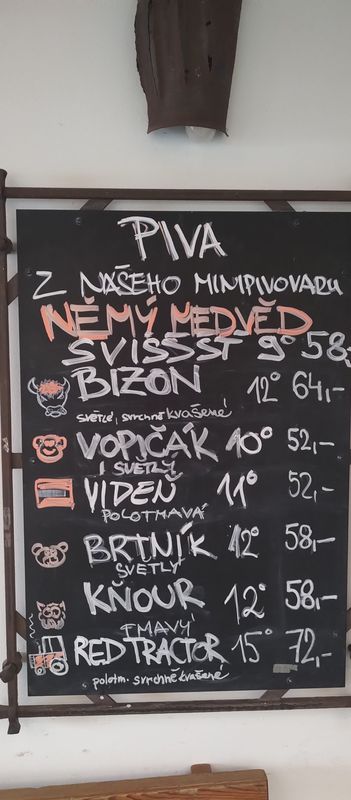 PIVA
Z NAŠEHO MINIPIVOVARU
NĚMÝ MEDVĚD
SVISSST 9° 58,-
BIZON 12° 64,-
světlé, svrchně kvašené
VOPIČÁK 10° 52,-
SVĚTLÝ
VIDEŇ 11° 52,-
POLOTMAVÁ
BRTNÍK 12° 58,-
SVĚTLÝ
KŇOUR 12° 58,-
TMAVÝ
RED TRACTOR 15° 72,-
polotm. svrchně kvašené